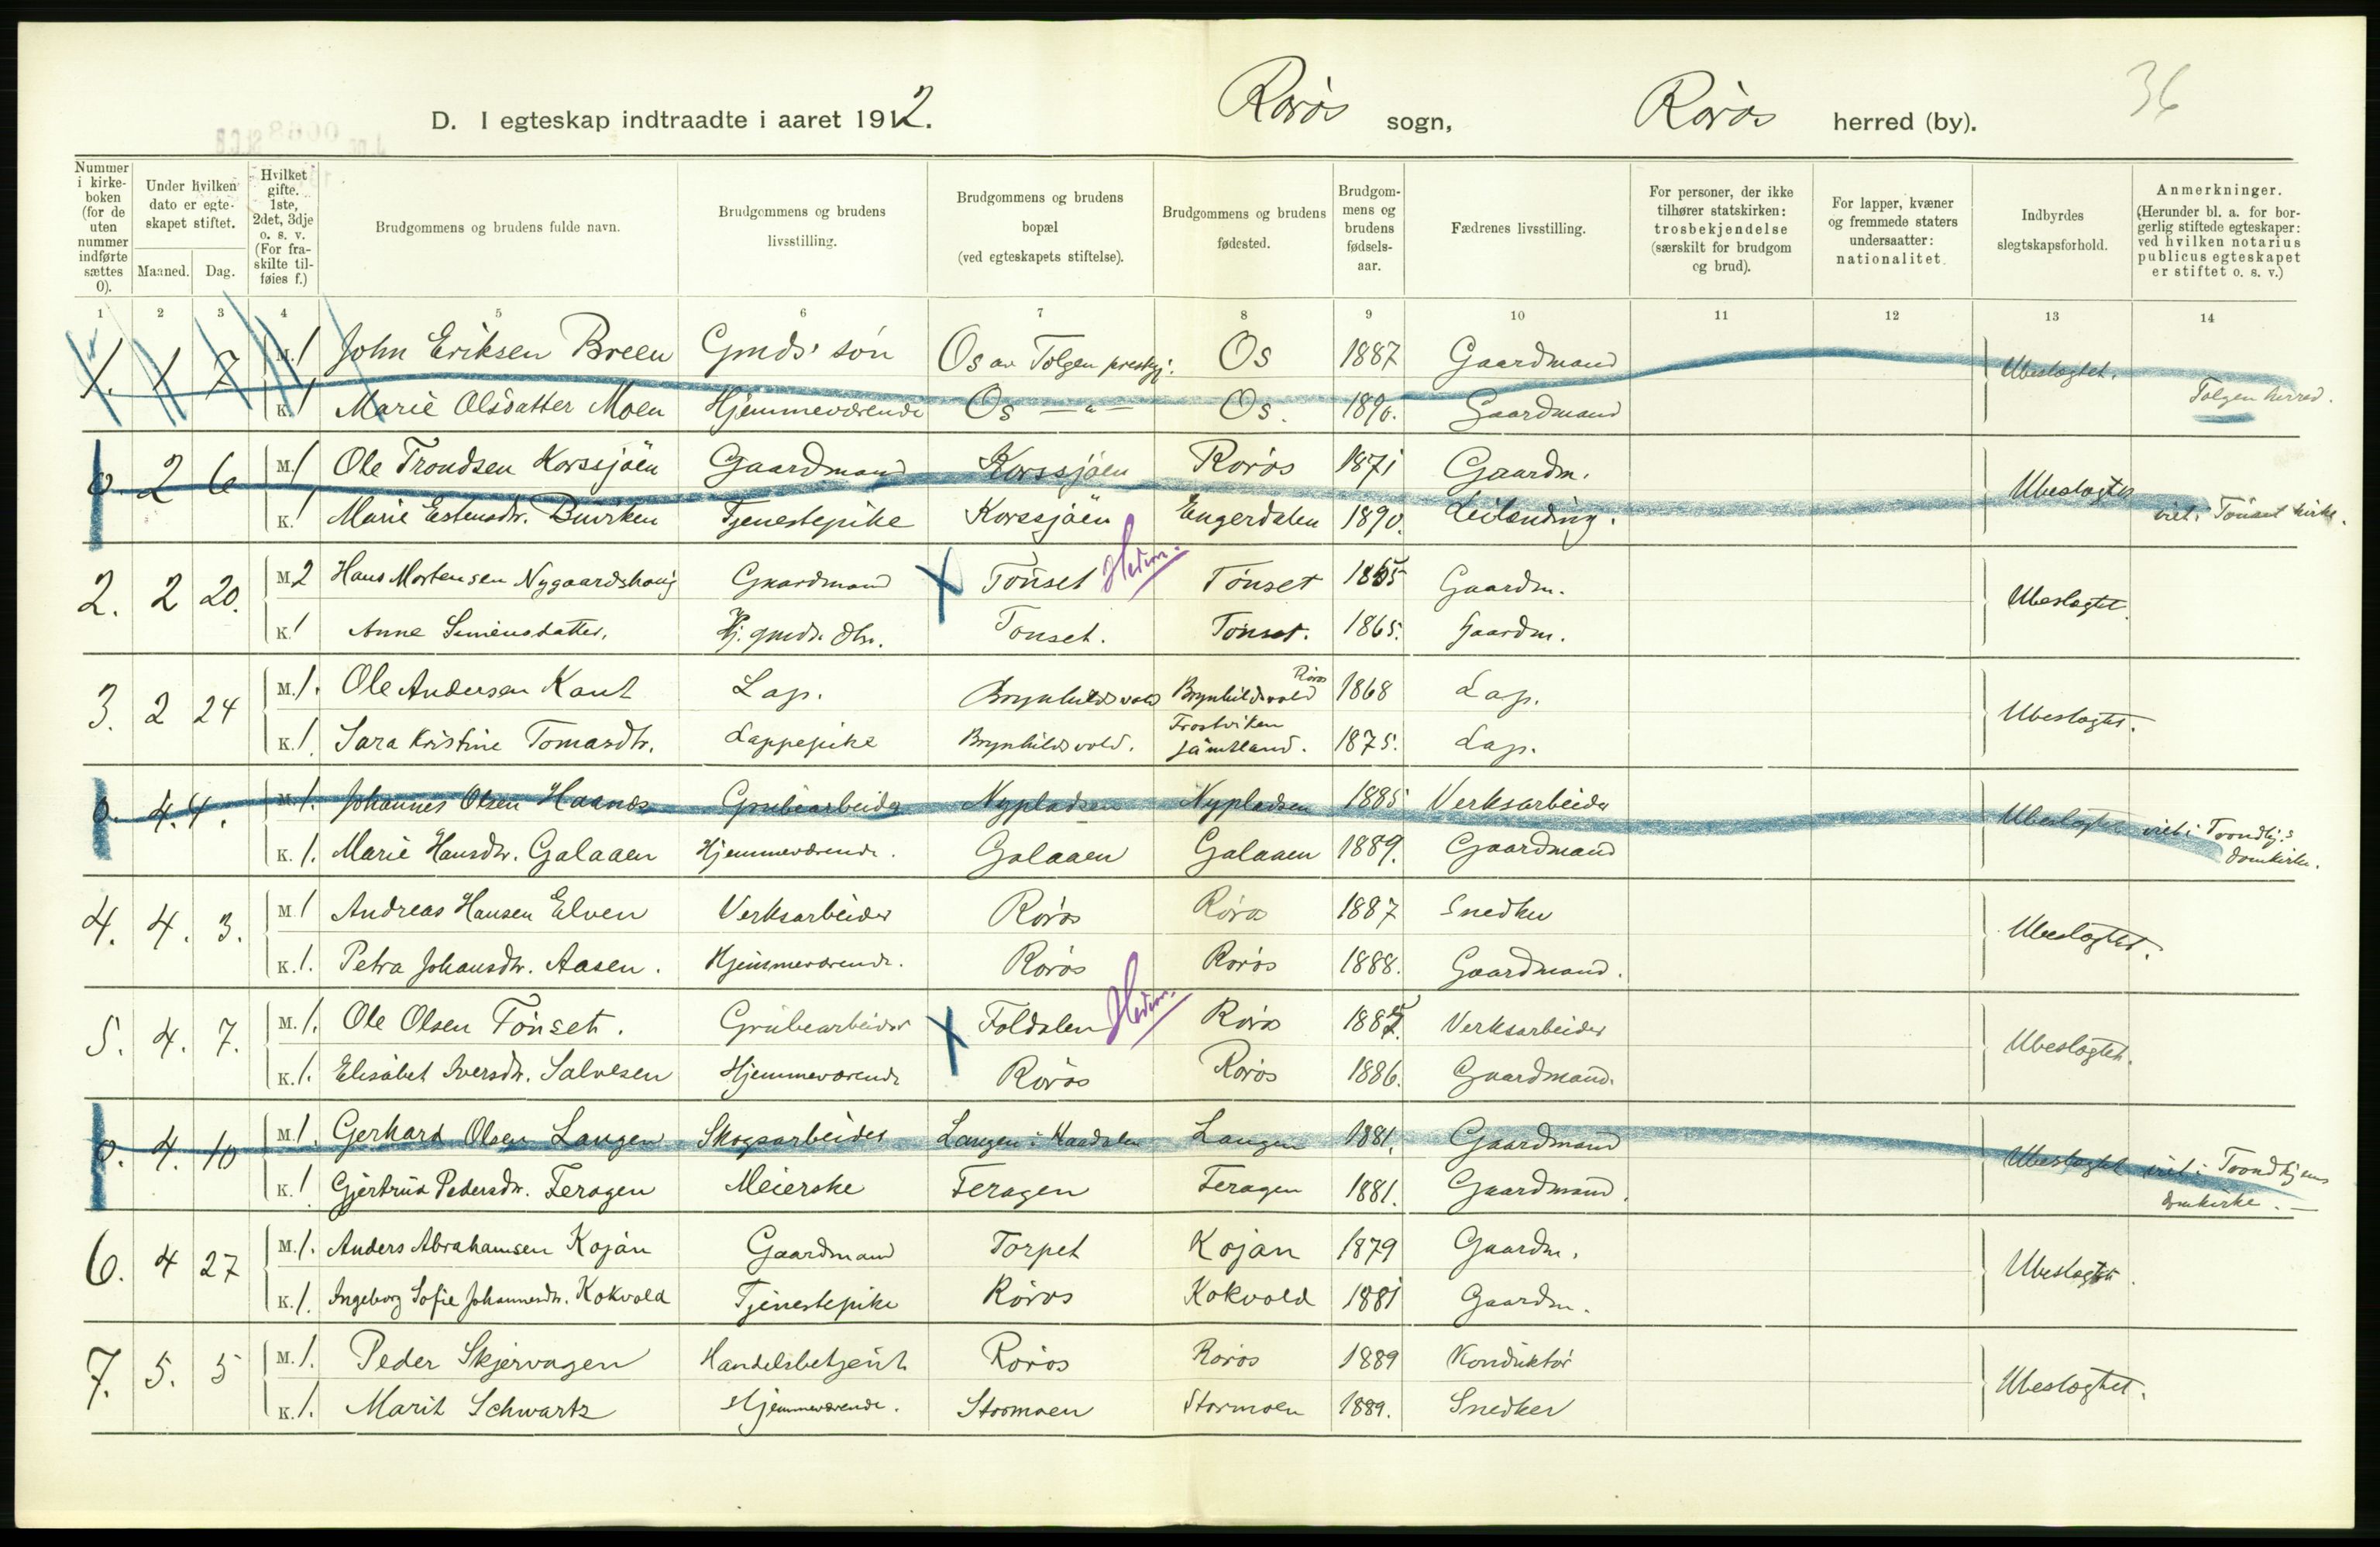 36
D. I egteskap indtraadte i aaret 1912. Røros sogn, Røros herred (by).
Nummer i kirke-boken (for de uten nummer indførte sættes 0).
Under hvilken dato er egte-skapet stiftet.
Maaned. Dag.
Hvilket gifte. 1ste, 2det, 3dje o. s. v. (For fra-skilte til-føies f.)
Brudgommens og brudens fulde navn.
Brudgommens og brudens livsstilling.
Brudgommens og brudens bopæl (ved egteskapets stiftelse).
Brudgommens og brudens fødested.
Brudgom-mens og brudens fødsels-aar.
Fædrenes livsstilling.
For personer, der ikke tilhører statskirken: trosbekjendelse (særskilt for brudgom og brud).
For lapper, kvæner og fremmede staters undersaatter: nationalitet.
Indbyrdes slegtskapsforhold.
Anmerkninger. (Herunder bl. a. for bor-gerlig stiftede egteskaper: ved hvilken notarius publicus egteskapet er stiftet o. s. v.)
1 2 3 4 5 6 7 8 9 10 11 12 13 14
1. 1 7 M. 1 John Eriksen Breen Gmds. søn Os av Tolgen prestgj. Os 1887 Gaardmand Ubeslegtet.
K. 1 Marie Olsdatter Moen Hjemmeværende Os — " — Os. 1890. Gaardmand Tolgen herred.
0. 2 6 M. 1 Ole Trondsen Korssjöen Gaardmand Korssjöen Røros 1871 Gaardm. Ubeslegtet
K. 1 Marie Estensdtr. Buvrken Tjenestepike Korssjöen Engerdalen 1890. Leilending. viet i Tönset kirke.
2. 2 20. M. 2 Hans Mortensen Nygaardshaug Gaardmand Tönset Hedm. Tönset 1865 Gaardm. Ubeslegtet.
K. 1 Anne Simensdatter. Hj. gmds. dtr. Tonset. Tønset. 1865. Gaardm.
3. 2 24 M. 1. Ole Andersen Kant Lap. Brynhildsvold Brynhildsvold Røros 1868 Lap. Ubeslegtet.
K. 1. Sara Kristine Tomasdtr. Lappepike Brynhildsvold. Frostviken Jämtland. 1875. Lap.
0. 4. 4. M. 1. Johannes Olsen Haanes Grubearbeider Nypladsen Nypladsen 1885 Verksarbeider Ubeslegtet viet i Trondhj.s
K. 1. Marie Hansdtr. Galaaen Hjemmeværende. Galaaen Galaaen 1889. Gaardmand domkirke.
4. 4. 3. M. 1 Andreas Hansen Elven Verksarbeider Røros Røros 1887 Snedker Ubeslegtet.
K. 1. Petra Johansdtr. Aasen. Hjemmeværende. Røros Røros 1888. Gaardmand.
5. 4. 7. M. 1. Ole Olsen Tönset. Grubearbeider Foldalen Hedm. Røros 1887. Verksarbeider Ubeslegtet.
K. 1. Elisabet Iversdtr. Salvesen Hjemmeværende Røros Røros 1886. Gaardmand.
0. 4. 10 M. 1. Gerhard Olsen Langen Skogsarbeider Langen i Haadalen Langen 1881. Gaardmand Ubeslegtet viet i Trondhjems
K. 1 Gjertrud Pedersdtr. Feragen Meierske Feragen Feragen 1881. Gaardmand. domkirke. —
6. 4 27 M. 1. Anders Abrahamsen Kojan Gaardmand Torpet Kojan 1879 Gaardm. Ubeslegtet.
K. 1. Ingeborg Sofie Johannesdtr. Kokvold Tjenestepike Røros Kokvold 1881 Gaardm.
7. 5. 5 M. 1. Peder Skjervagen Handelsbetjent Røros Røros 1889 Konduktør Ubeslegtet.
K. 1. Marit Schwartz Hjemmeværende. Stormoen Stormoen 1889. Snedker